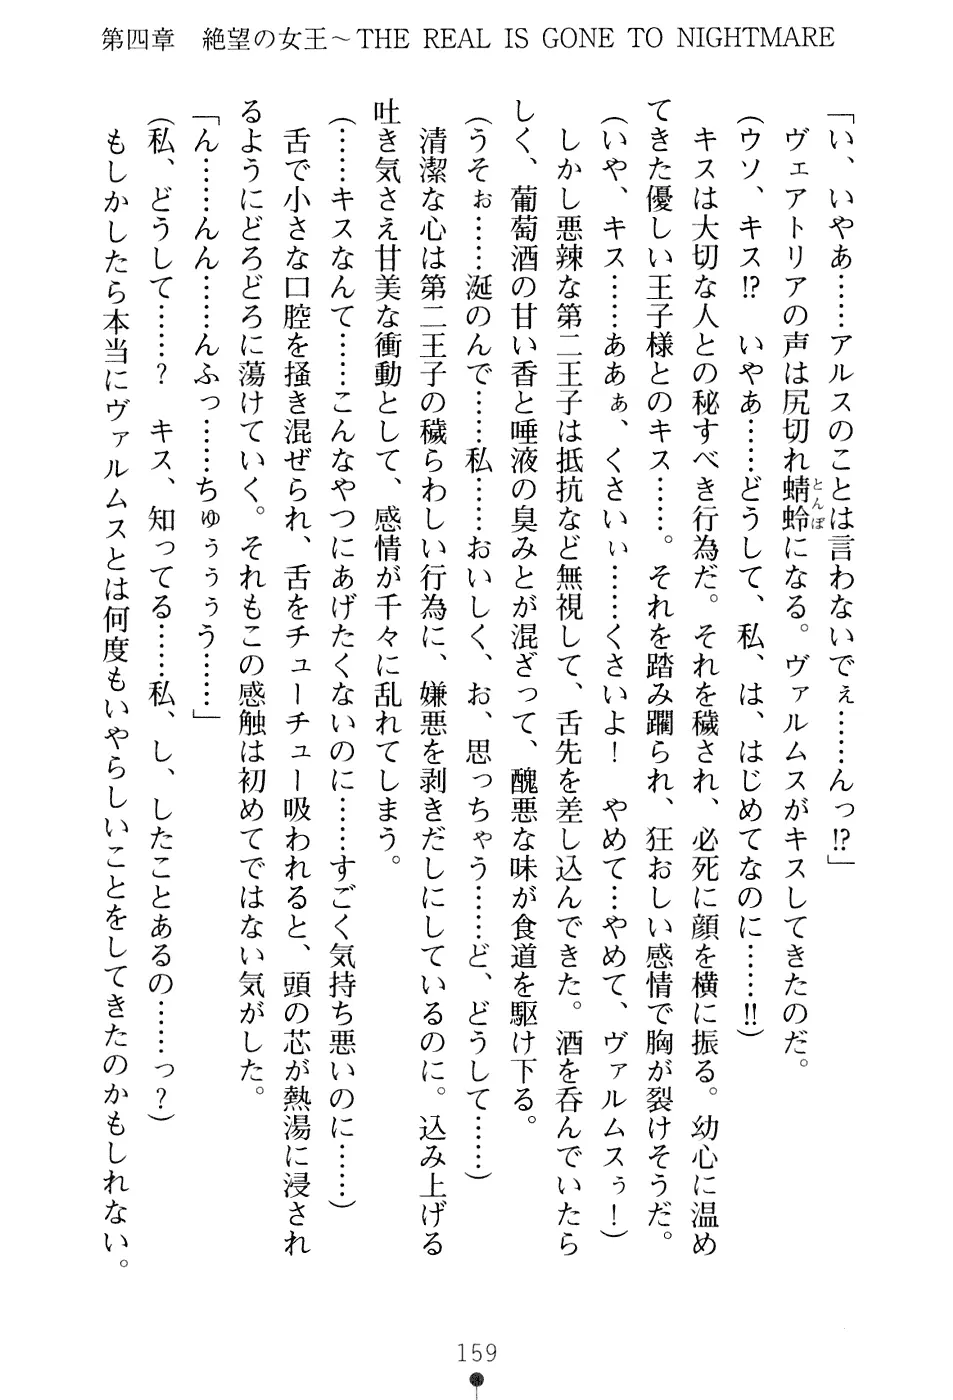 第四章　絶望の女王～THE REAL IS GONE TO NIGHTMARE
「い、いやあ……アルスのことは言わないでぇ……んっ!?」
ヴェアトリアの声は尻切れ蜻蛉(とんぼ)になる。ヴァルムスがキスしてきたのだ。
(ウソ、キス!?　いやあ……どうして、私、は、はじめてなのに……!!)
キスは大切な人との秘すべき行為だ。それを穢され、必死に顔を横に振る。幼心に温め
てきた優しい王子様とのキス……。それを踏み躙られ、狂おしい感情で胸が裂けそうだ。
(いや、キス……ああぁ、くさいぃ……くさいよ！　やめて…やめて、ヴァルムスぅ！)
しかし悪辣な第二王子は抵抗など無視して、舌先を差し込んできた。酒を呑んでいたら
しく、葡萄酒の甘い香と唾液の臭みとが混ざって、醜悪な味が食道を駆け下る。
(うそぉ……涎のんで……私……おいしく、お、思っちゃう……ど、どうして……)
清潔な心は第二王子の穢らわしい行為に、嫌悪を剥きだしにしているのに。込み上げる
吐き気さえ甘美な衝動として、感情が千々に乱れてしまう。
(……キスなんて……こんなやつにあげたくないのに……すごく気持ち悪いのに……)
舌で小さな口腔を掻き混ぜられ、舌をチューチュー吸われると、頭の芯が熱湯に浸され
るようにどろどろに蕩けていく。それもこの感触は初めてではない気がした。
「ん……んん……んふっ……ちゅぅぅぅう……」
(私、どうして……？　キス、知ってる……私、し、したことあるの……っ？)
もしかしたら本当にヴァルムスとは何度もいやらしいことをしてきたのかもしれない。
159